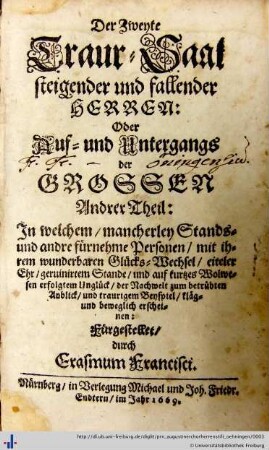 Der Zweyte
Traur-Saal
steigender und fallender
HERREN:
Oder
Auf- und Untergangs
der
GROSSEN
Andrer Theil:
In welchem / mancherley Stands-
und andre fürnehme Personen / mit ih-
rem wunderbaren Glücks-Wechsel / eiteler
Ehr / geruinirtem Stande / und auf kurtzes Wolwe-
sen erfolgtem Unglück / der Nachwelt zum betrübten
Anblick / und traurigem Beyspiel / kläg-
und beweglich erschei-
nen:
Fürgestellet /
durch
Erasmum Francisci.
Nürnberg / in Verlegung Michael und Joh. Friedr.
Endtern / im Jahr 1669.
© Universitätsbibliothek Freiburg